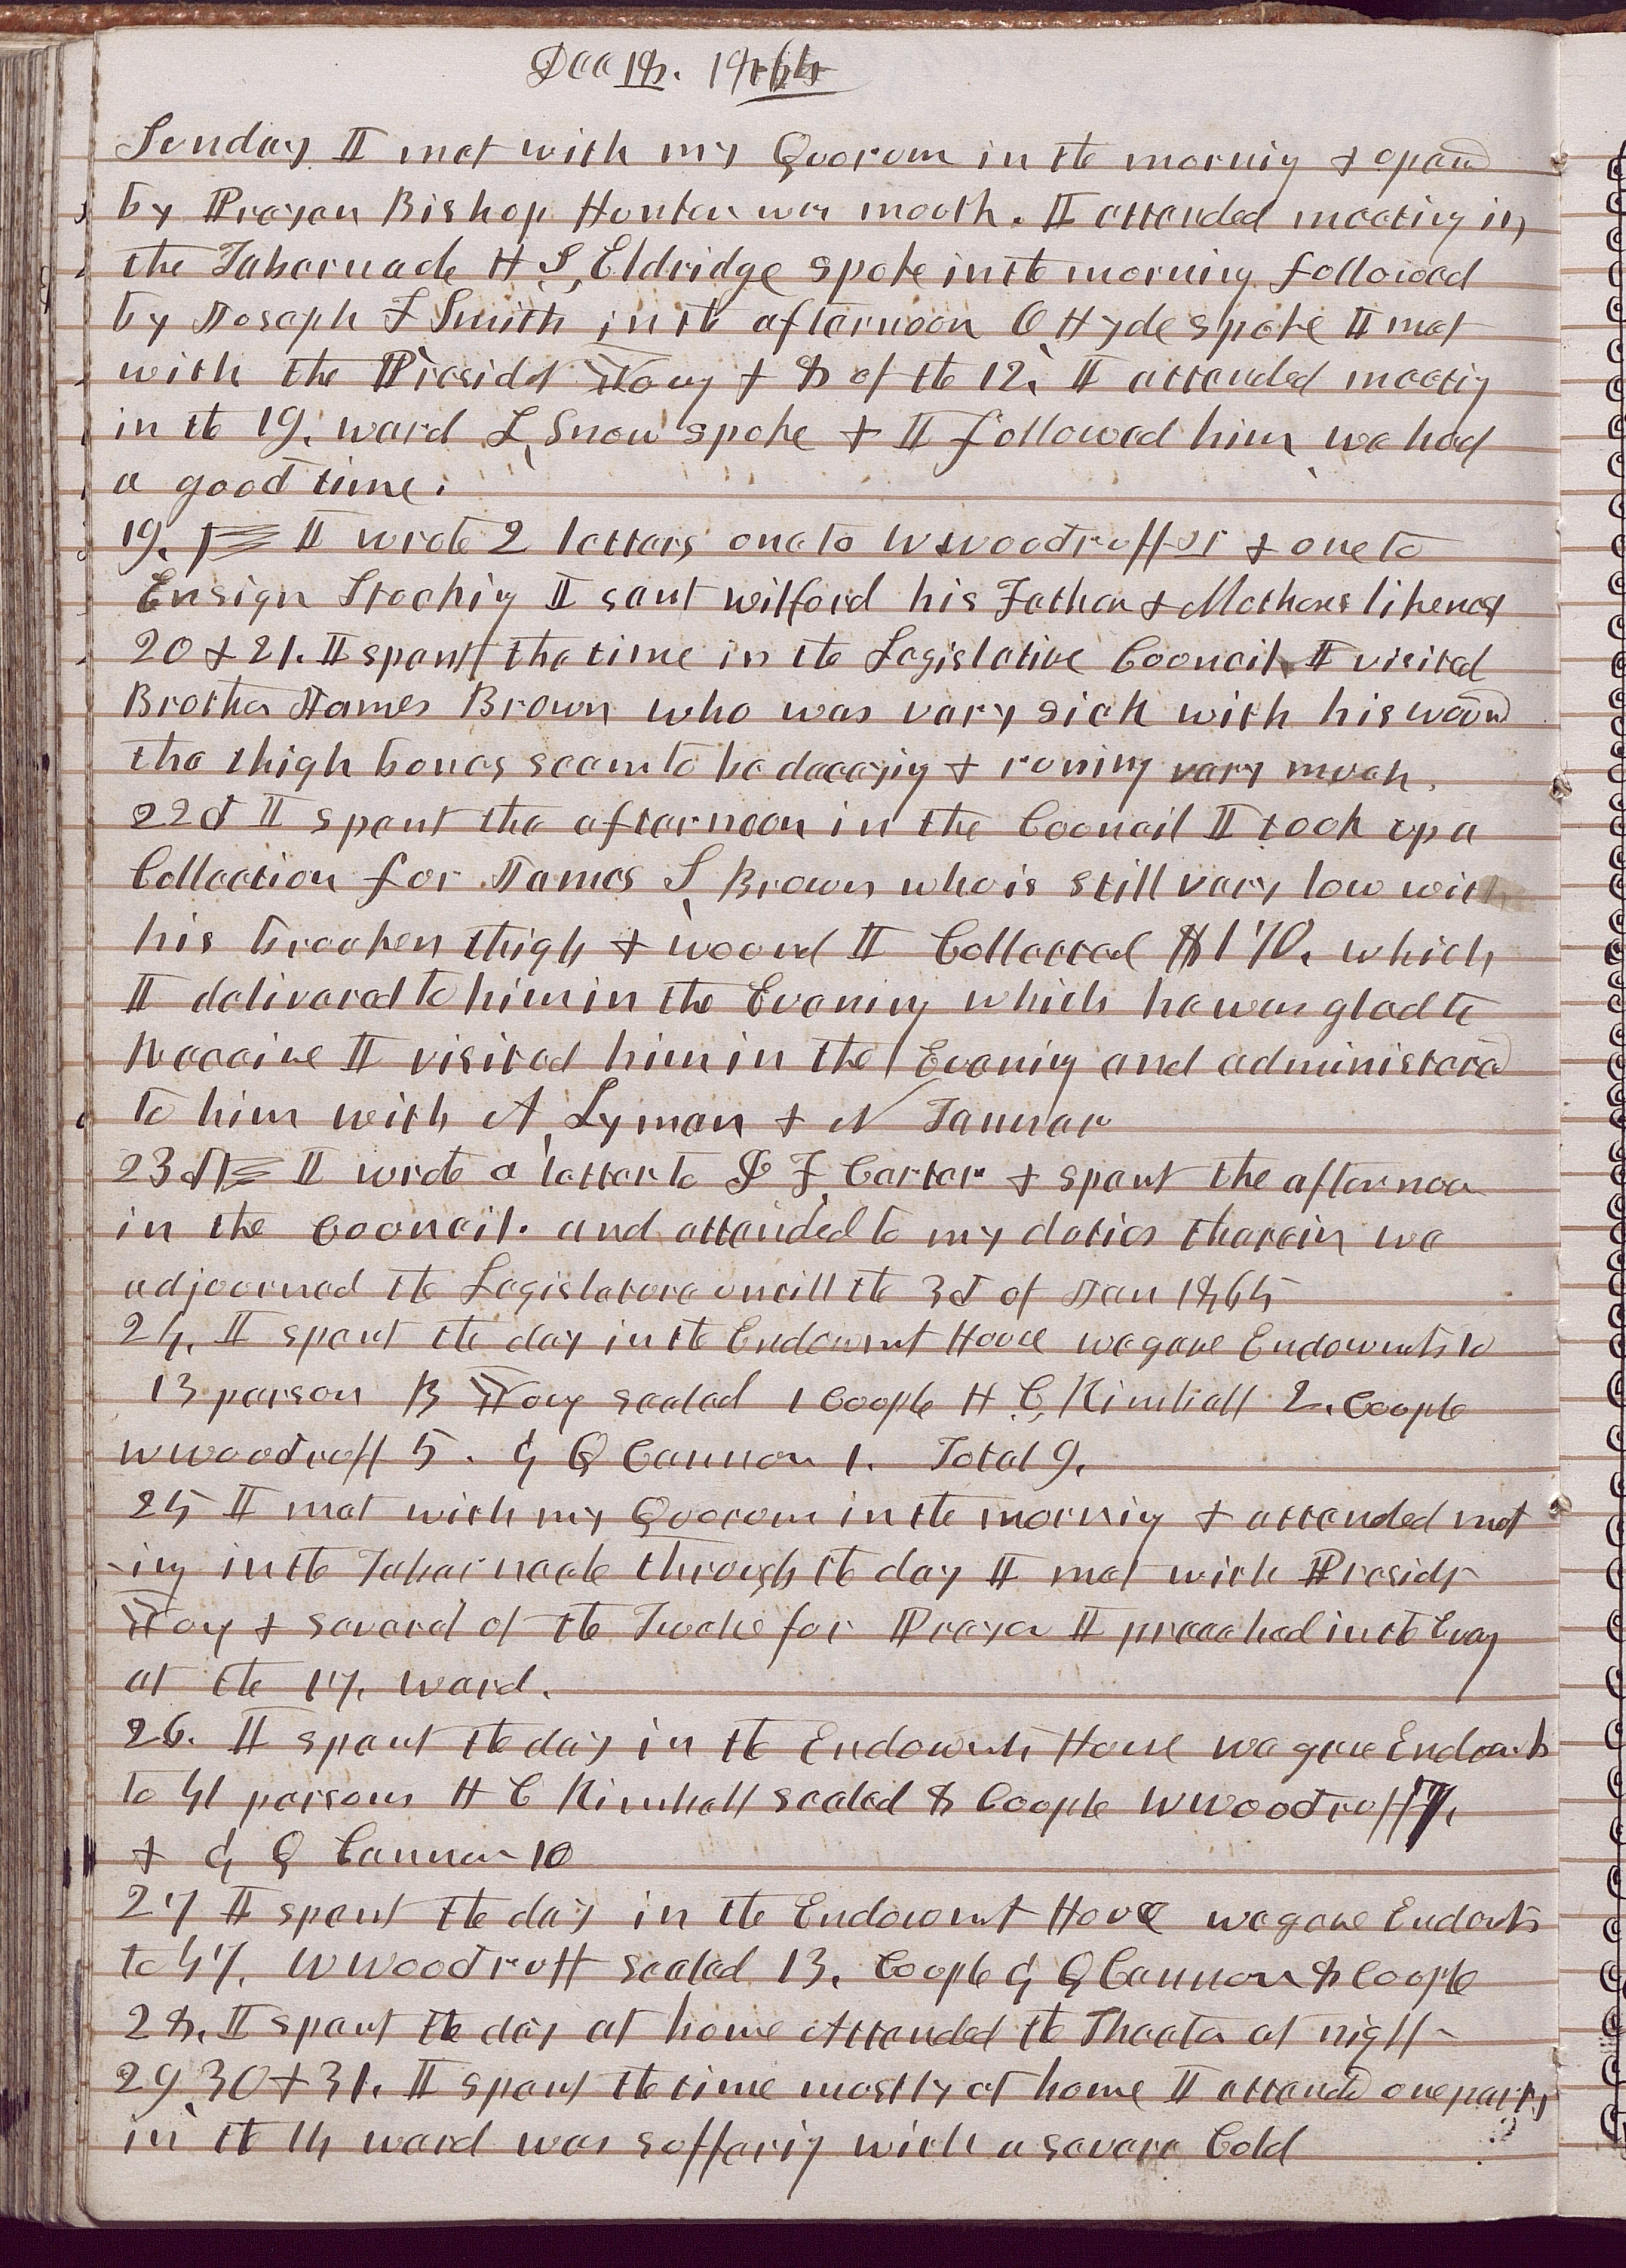 Dec 18. 1864
Sunday I met with my Quorum in the morning & opened
by Prayer Bishop Hunter was mouth. I attended meeting in
the Tabernacle H S, Eldridge spoke in the morning followed
by Joseph F Smith in the afternoon O Hyde spoke I met
with the Presidet Young & 8 of the 12. I attended meetig
in the 19. ward L, Snow spoke & I followed him we had
a good time.
19. I wrote 2 letters one to W Woodruff jr & one to
Ensign Stocking I sent Wilford his Father & Mothers likeness
20 & 21. I spent the time in the Legislative Council I visited
Brother James Brown who was very sick with his wound
the thigh bones seem to be decayig & runing very much.
22d I spent the afternoon in the Council I took up a
Collection for James S, Brown who is still very low with
his broaken thigh & wound I Collected $170. which
I delivered to him in the Evening which he was glad to
Receive I visited him in the Evening and administered
to him with A, Lyman & N Tanner
23d I wrote a letter to I F Carter & spent the afternoon
in the Council. and attended to my duties therein we
adjourned the Legislature untill the 3d of Jan 1865
24. I spent the day in the Endowmt House we gave Endowmets to
13 person B Young sealed 1 Couple H C, Kimball 2. Couple
W Woodruff 5. G Q Cannon 1. Total 9.
25 I met with my Quorum in the mornig & attended met
-ing in the Tabernacle through the day I met with Presidt
Young & severl of the Twelve for Prayer I preached in the Eveg
at the 17. ward.
26. I spent the day in the Endowmt House we gave Endowmts
to 41 persons H C Kimball sealed 8 Couple W Woodruff 7,
& G Q Cannon 10
27 I spent the day in the Endowmt House we gave Endowts
to 47. W Woodruff sealed 13. Couple G Q Cannon 8 Couple
28. I spent the day at home Attended the Theater at night
29 30 & 31. I spent the time mostly at home I attended one party
in the 14 ward was suffering with a severe Cold